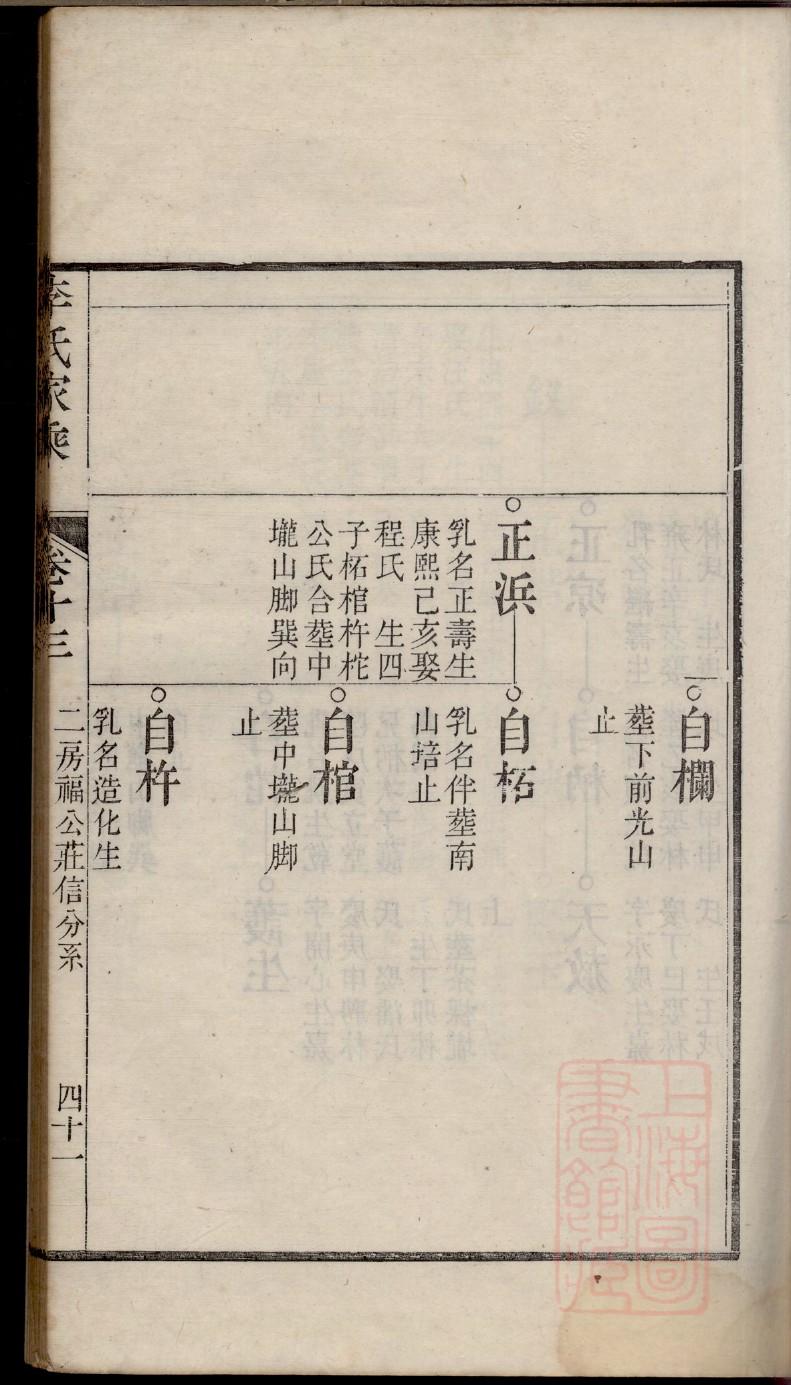 自欄
塟下前光山
止
正浜
乳名正壽生
康熙己亥娶
程氏　生四
子柘棺杵柁
公氏合塟中
壠山脚巽向
自柘
乳名伴塟南
山培止
自棺
塟中壠山脚
止
自杵
乳名造化生
李氏家乘
卷十三
二房福公莊信分系
四十一
上海圖書館藏